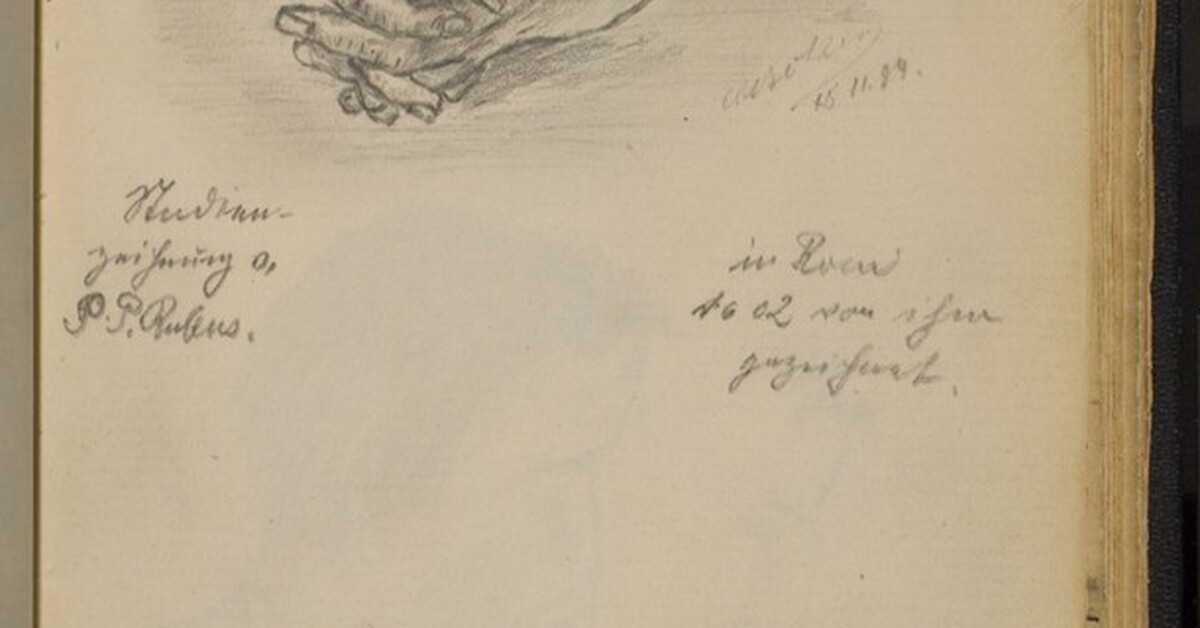 18 11. 89.
Studien-
zeichnung v.
P. P. Rubens.
in Rom
1602 von ihm
gezeichnet.